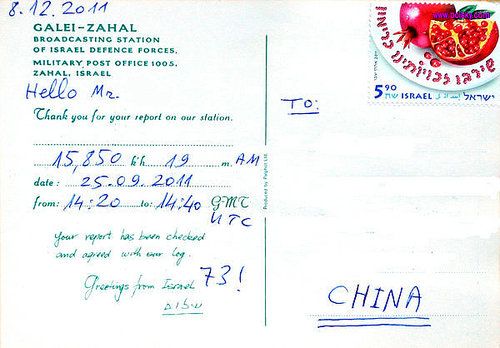 8.12.2011
GALEI-ZAHAL
BROADCASTING STATION
OF ISRAEL DEFENCE FORCES,
MILITARY POST OFFICE 1005,
ZAHAL, ISRAEL
Hello Mr.
Thank you for your report on our station.
15,850 kh 19 m AM
date: 25.09.2011
from: 14:20 to: 14:40 GMT
UTC
Your report has been checked
and agreed with our log.
Greetings from Israel 73!
שלום
Produced by Palphot Ltd.
5.90 ISRAEL ישראל
TO:
CHINA